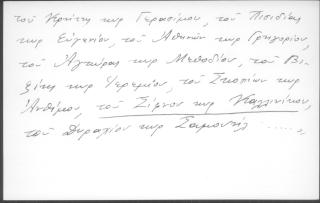 τοῦ Κρήτης κυρ Γερασίμου, τοῦ Πισιδίας
κυρ Εὐγενίου, τοῦ Ἀθηνῶν κυρ Γρηγορίου,
τοῦ Ἀγκύρας κυρ Μεθοδίου, τοῦ Βι-
ζύης κυρ Ἱερεμίου, τοῦ Σκοπίων κυρ
Ἀνθίμου, τοῦ Σίφνου κυρ Καλλινίκου,
τοῦ Δυραχίου κυρ Σαμουήλ ......,,